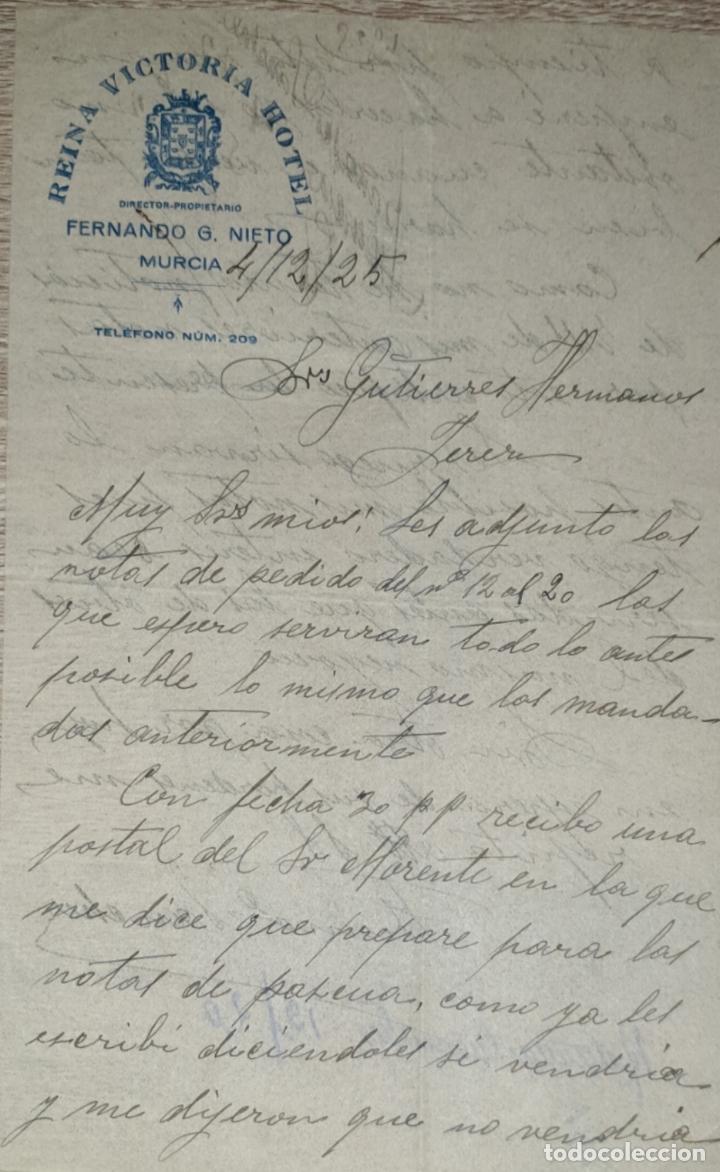 REINA VICTORIA HOTEL
DIRECTOR-PROPIETARIO
FERNANDO G. NIETO
MURCIA 4/12/25
TELÉFONO NÚM. 209
Srs Gutierres Hermanos
Jerez
Muy Srs mios: Les adjunto las
notas de pedido del nº 12 al 20 las
que espero serviran todo lo antes
posible lo mismo que las manda-
das anteriormente
Con fecha 30 pp recibo una
postal del Sr Morente en la que
me dice que prepare para las
notas de pascua, como ya les
escribi diciendoles si vendria
y me dijeron que no vendria
todocoleccion